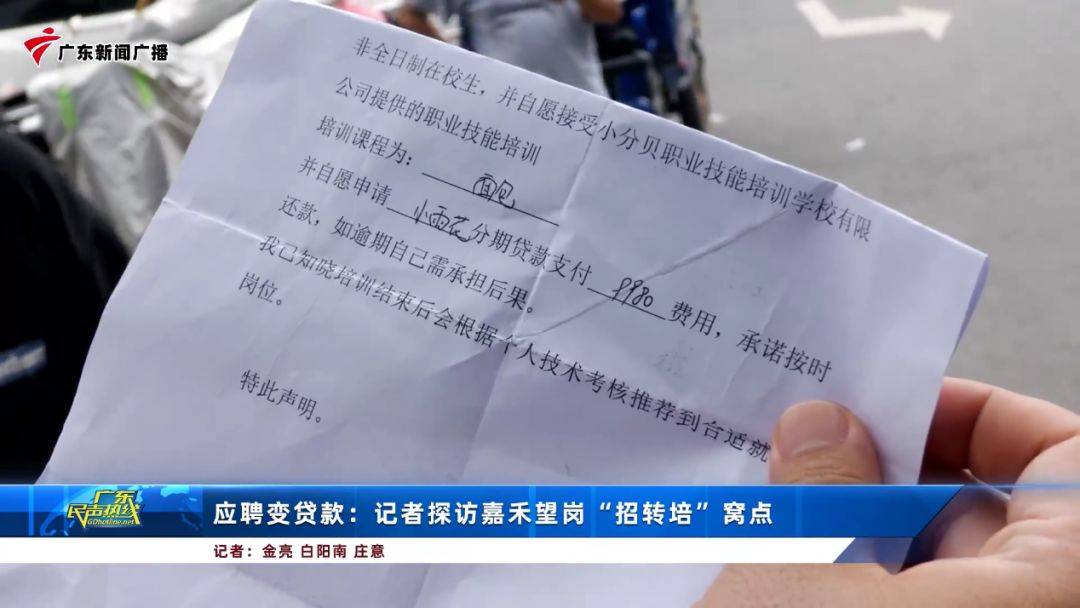 广东新闻广播
非全日制在校生，并自愿接受小分贝职业技能培训学校有限
公司提供的职业技能培训
培训课程为：面包
并自愿申请小雨花分期贷款支付9980费用，承诺按时
还款，如逾期自己需承担后果。
我已知晓培训结束后会根据个人技术考核推荐到合适就
岗位。
特此声明。
广东
民声热线
GDhotline.net
应聘变贷款：记者探访嘉禾望岗“招转培”窝点
记者：金亮 白阳南 庄意